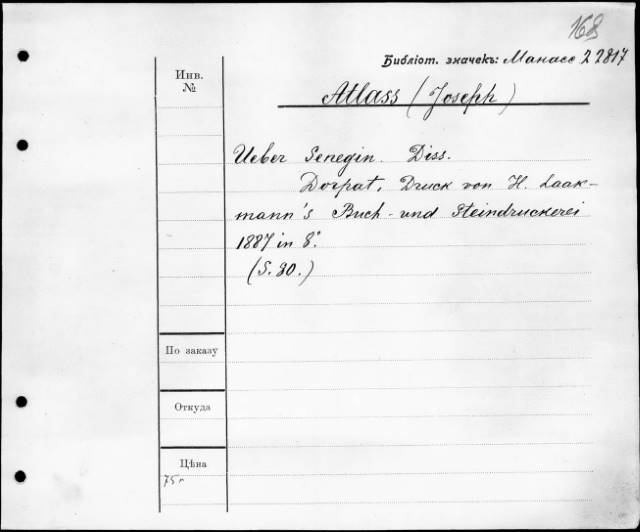 168
Библіот. значекъ: Манасс 2 2817
Инв. №
Atlass (Joseph)
Ueber Senegin. Diss.
Dorpat, Druck von H. Laak-
mann's Buch- und Steindruckerei
1887 in 8°.
(S. 90.)
По заказу
Откуда
Цѣна
75 г